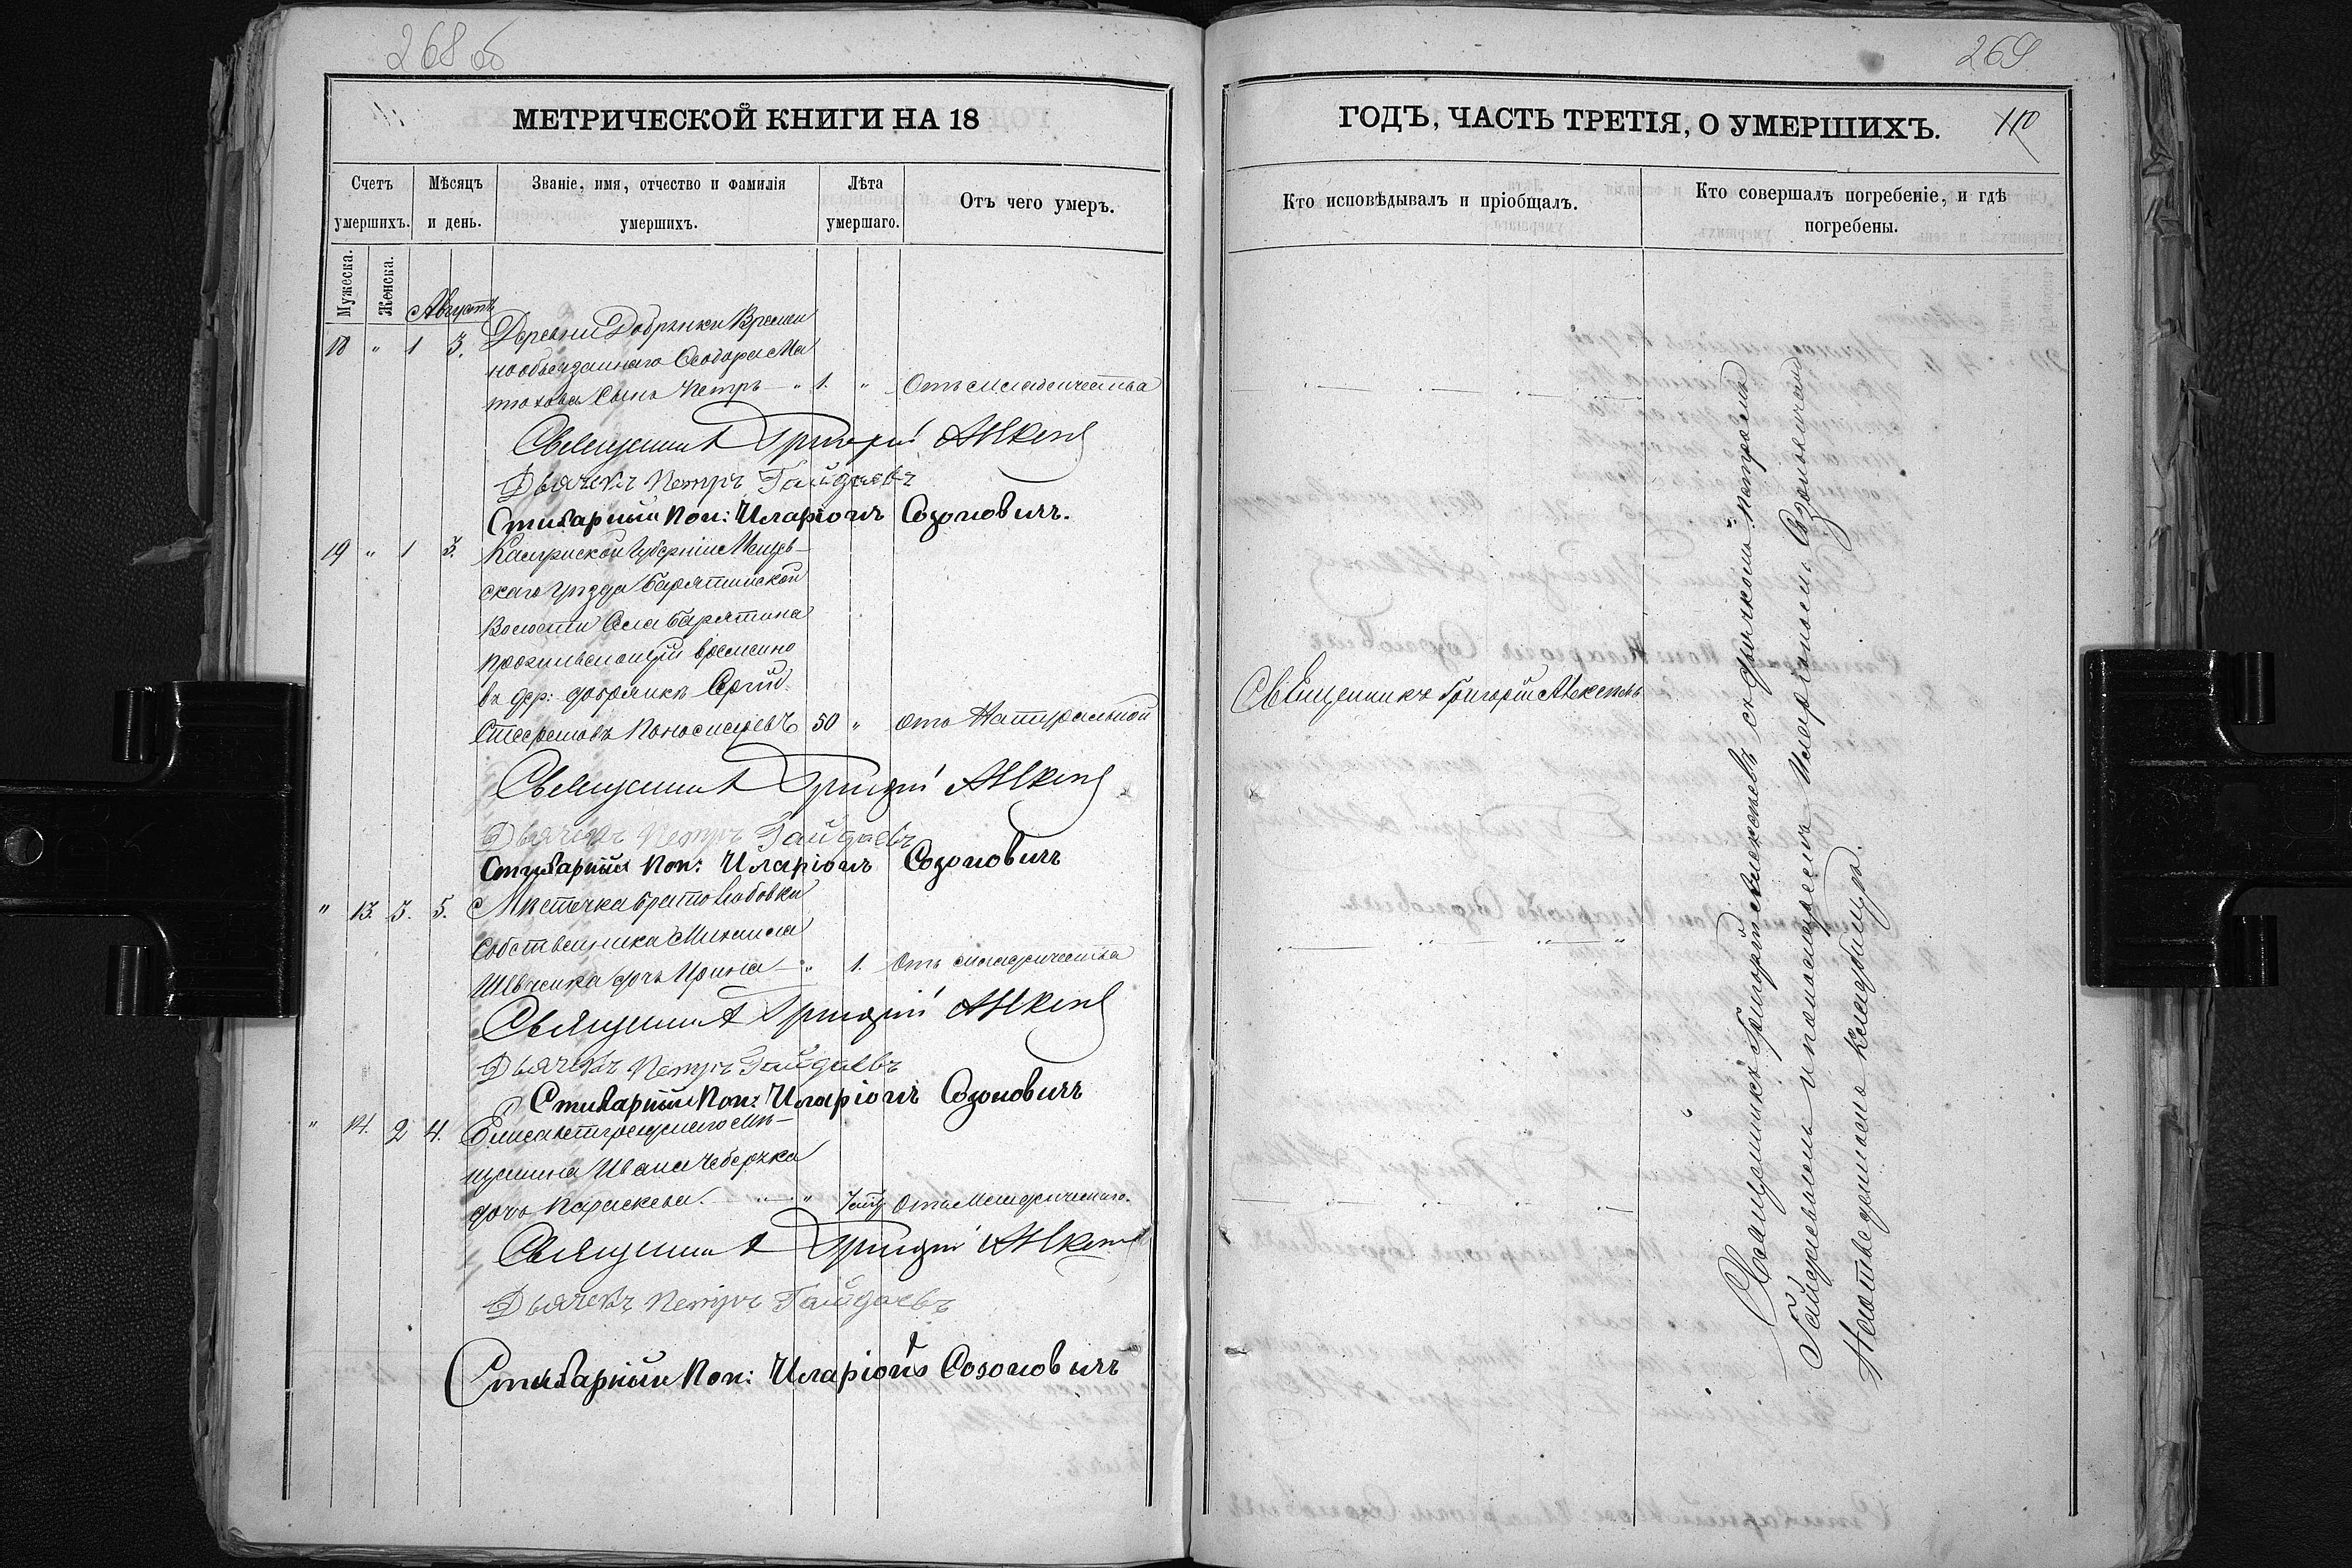 268 об
МЕТРИЧЕСКОЙ КНИГИ НА 18
Счетъ умершихъ.
Мѣсяцъ и день.
Званіе, имя, отчество и фамилія умершихъ.
Лѣта умершаго.
Отъ чего умеръ.
Мужеска.
Женска.
Августъ
18 " 1 3. Деревни Добрянки Времен
нообязаннаго Ѳеодора Ма
тюхова Сынъ Петръ — " 1. " Отъ младенчества
Священникъ Григорій
Дьячекъ Петръ Гайдаевъ
Стихарный Пон: Иларіонъ Созоновичъ.
19 " 1 3. Калужской Губерніи Мещев-
скаго Уѣзда Барятинской
Волости Села Барятина
проживающій временно
въ дер: добрянкѣ Сергій
50 " отъ Натуральной
Священникъ Григорій
Дьячекъ Петръ Гайдаевъ
Стихарный Пон: Иларіонъ Созоновичъ
" 13. 3. 5. Мѣстечка Братолюбовки
Собственника Михаила
Швыенка дочь Ирина — " 1. Отъ младенчества
Священникъ Григорій
Дьячекъ Петръ Гайдаевъ
Стихарный Пон: Иларіонъ Созоновичъ
" 14. 2 4. Елисаветградскаго Мѣ-
щанина Ивана Чеберчка
дочь Параскева. " Отъ Младенческаго.
Священникъ Григорій
Дьячекъ Петръ Гайдаевъ
Стихарный Пон: Иларіонъ Созоновичъ
269
ГОДЪ, ЧАСТЬ ТРЕТІЯ, О УМЕРШИХЪ.
110
Кто исповѣдывалъ и пріобщалъ.
Кто совершалъ погребеніе, и гдѣ погребены.
Священникъ Григорій Алексѣевъ
Священникъ Григорій Алексѣевъ съ дьячкомъ Петромъ
Гайдаевымъ и пономаремъ Иларіономъ Созоновичемъ
на отведенномъ кладбищѣ.